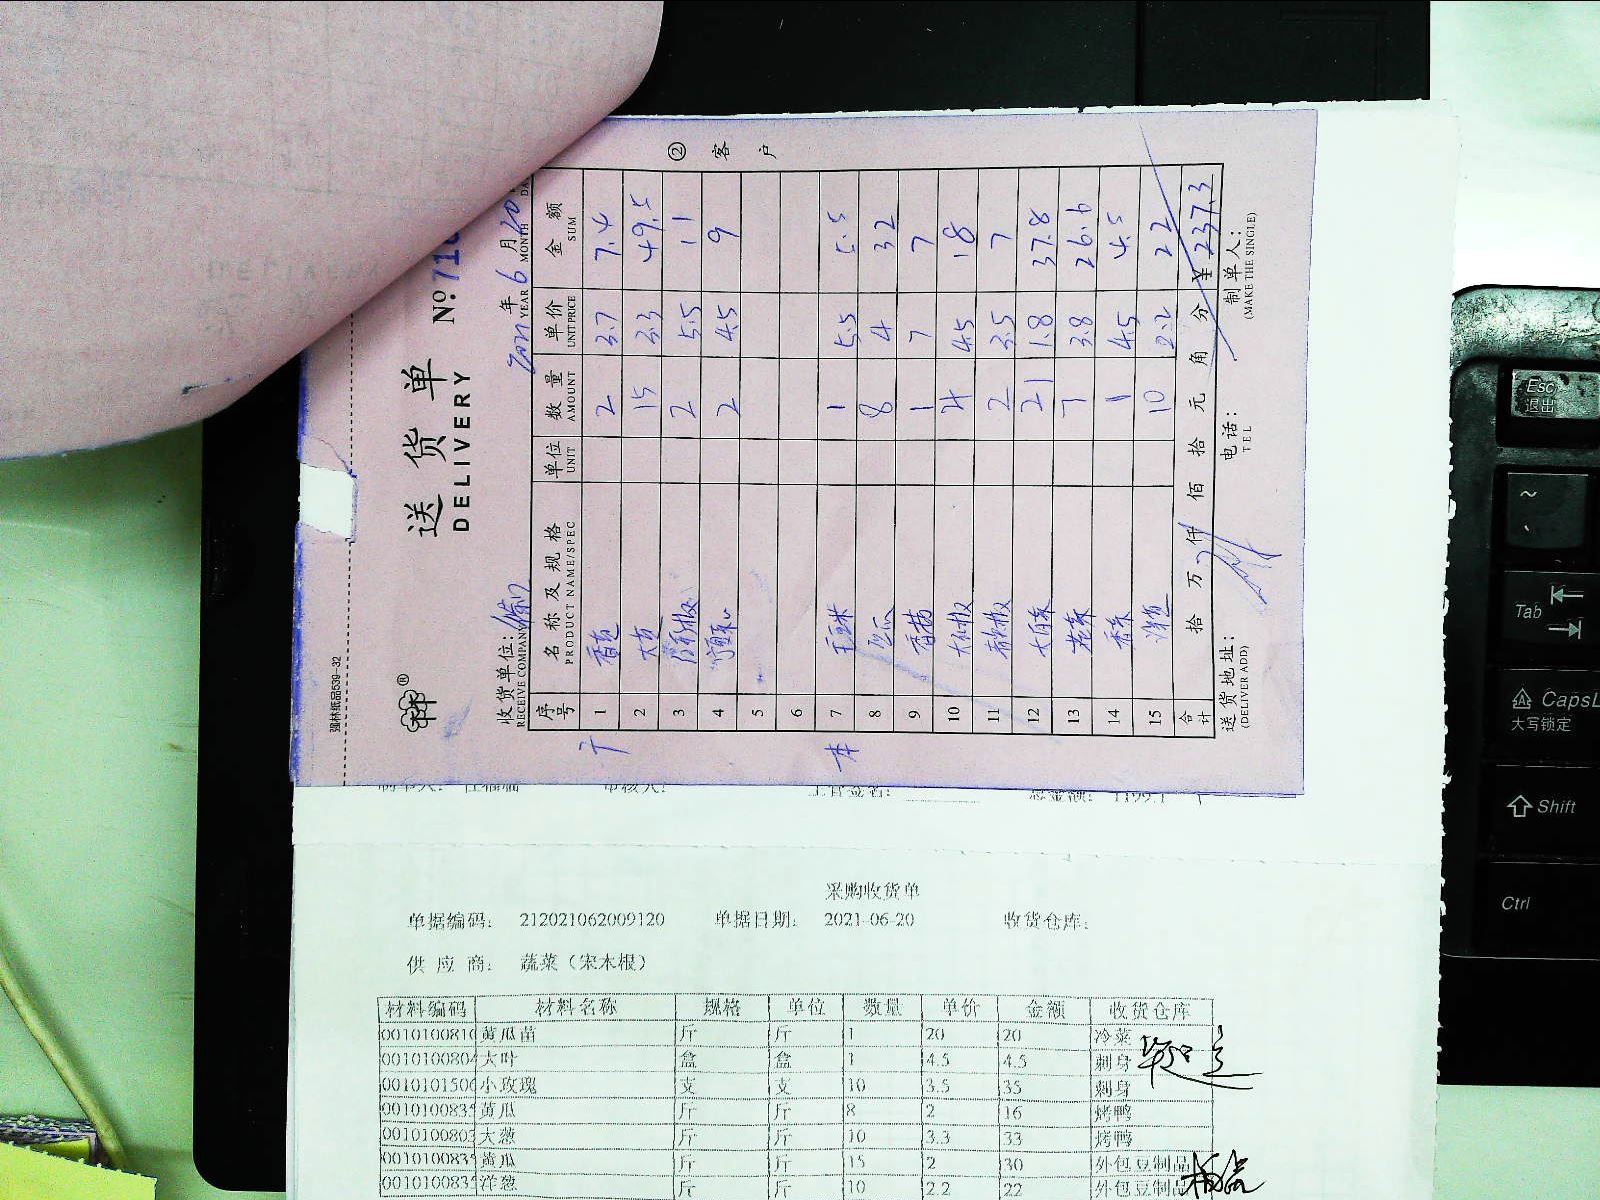 强林纸品539-32
送货单
DELIVERY
№:71
收货单位:
RECEIVE COMPANY
2021年6月20
YEAR MONTH DA
序号 名称及规格 单位 数量 单价 金额
PRODUCT NAME/SPEC UNIT AMOUNT UNIT PRICE SUM
1 香芹 2 3.7 7.4
2 大 15 3.3 49.5
3 2 5.5 11
4 2 4.5 9
5
6
7 玉米 1 5.5 5.5
8 8 4 32
9 香 1 7 7
10 大 椒 4 4.5 18
11 椒 2 3.5 7
12 大白菜 21 1.8 37.8
13 花菜 7 3.8 26.6
14 香菜 1 4.5 4.5
15 洋 10 2.2 22
合计 拾 万 仟 佰 拾 元 角 分 ¥237.3
送货地址: 电话: 制单人:
(DELIVER ADD) TEL (MAKE THE SINGLE)
② 客户
总金额: 1199.1
采购收货单
单据编码: 212021062009120 单据日期: 2021-06-20 收货仓库:
供应商: 蔬菜(宋木根)
材料编码 材料名称 规格 单位 数量 单价 金额 收货仓库
0010100810 黄瓜苗 斤 斤 1 20 20 冷菜
001010080 大叶 盒 盒 1 4.5 4.5 刺身
001010150 小玫瑰 支 支 10 3.5 35 刺身
001010083 黄瓜 斤 斤 8 2 16 烤鸭
001010080 大葱 斤 斤 10 3.3 33 烤鸭
001010083 黄瓜 斤 斤 15 2 30 外包豆制品
001010083 洋葱 斤 斤 10 2.2 22 外包豆制品
Esc
退出
~
Tab
CapsL
大写锁定
Shift
Ctrl